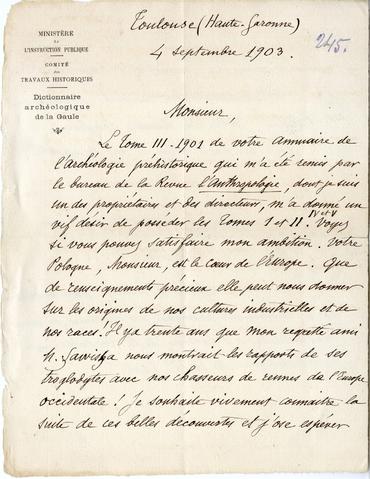 Toulouse (Haute-Garonne)
4 septembre 1903.
245.
MINISTÈRE
DE
L'INSTRUCTION PUBLIQUE
COMITÉ
DES
TRAVAUX HISTORIQUES
Dictionnaire
archéologique
de la Gaule
Monsieur,
Le Tome III-1901 de votre Annuaire de
l'archéologie prehistorique qui m'a été remis par
le bureau de la Revue l'Anthropologie, dont je suis
un des propriétaires et des directeurs, m'a donné un
vif désir de posséder les Tomes I et II, IV et V. Voyez
si vous pouvez satisfaire mon ambition. Votre
Pologne, Monsieur, est le cœur de l'Europe. Que
de renseignements précieux elle peut nous donner
sur les origines de nos cultures industrielles et de
nos races! Il y a trente ans que mon regretté ami
nous montrait les rapports de ses
troglodytes avec nos chasseurs de rennes de l'Europe
occidentale! Je souhaite vivement connaître la
suite de ces belles découvertes et j'ose espérer